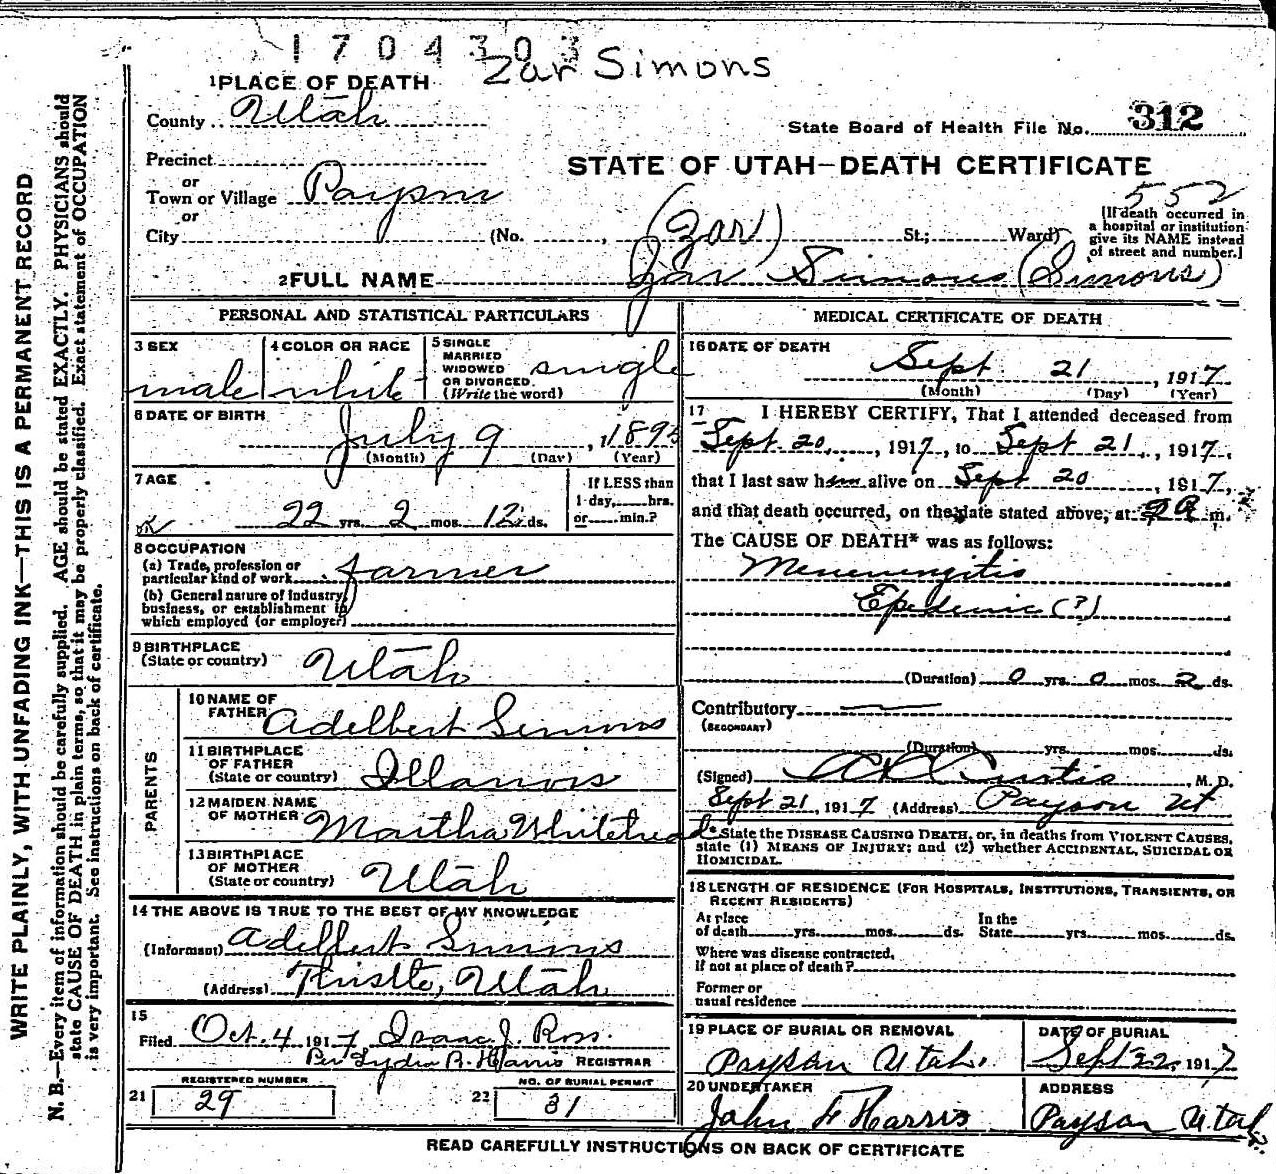 1704303
Zar Simons
1 PLACE OF DEATH
County Utah
State Board of Health File No. 312
Precinct
STATE OF UTAH—DEATH CERTIFICATE
or
Town or Village Payson
552
or
City (No. , St.; Ward)
[If death occurred in
a hospital or institution
give its NAME instead
of street and number.]
(Zar)
2 FULL NAME Zar Simons (Simons)
PERSONAL AND STATISTICAL PARTICULARS
3 SEX
male
4 COLOR OR RACE
white
5 SINGLE
MARRIED
WIDOWED
OR DIVORCED
(Write the word)
single
6 DATE OF BIRTH
July 9, 1895
(Month) (Day) (Year)
7 AGE
If LESS than
1 day, hrs.
or min.?
OK 22 yrs. 2 mos. 12 ds.
8 OCCUPATION
(a) Trade, profession or
particular kind of work farmer
(b) General nature of industry,
business, or establishment in
which employed (or employer)
9 BIRTHPLACE
(State or country) Utah
PARENTS
10 NAME OF
FATHER Adelbert Simons
11 BIRTHPLACE
OF FATHER
(State or country) Illanois
12 MAIDEN NAME
OF MOTHER Martha Whitehead
13 BIRTHPLACE
OF MOTHER
(State or country) Utah
14 THE ABOVE IS TRUE TO THE BEST OF MY KNOWLEDGE
(Informant) Adelbert Simons
(Address) Thistle, Utah
15
Filed Oct. 4 1917 Isaac J. Ross.
Per Lydia R. Harris REGISTRAR
REGISTERED NUMBER
21 29
NO. OF BURIAL PERMIT
22 31
MEDICAL CERTIFICATE OF DEATH
16 DATE OF DEATH
Sept 21, 1917
(Month) (Day) (Year)
17 I HEREBY CERTIFY, That I attended deceased from
Sept. 20, 1917, to Sept 21, 1917,
that I last saw him alive on Sept 20, 1917,
and that death occurred, on the date stated above, at m.
The CAUSE OF DEATH* was as follows:
Menenengitis
Epedemic (?)
(Duration) 0 yrs. 0 mos. 2 ds.
Contributory
(SECONDARY)
(Duration) yrs. mos. ds.
(Signed) Curtis, M. D.
Sept 21, 1917 (Address) Payson Ut
*State the DISEASE CAUSING DEATH, or, in deaths from VIOLENT CAUSES,
state (1) MEANS OF INJURY; and (2) whether ACCIDENTAL, SUICIDAL OR
HOMICIDAL.
18 LENGTH OF RESIDENCE (FOR HOSPITALS, INSTITUTIONS, TRANSIENTS, OR
RECENT RESIDENTS)
At place
of death yrs. mos. ds.
In the
State yrs. mos. ds.
Where was disease contracted,
if not at place of death?
Former or
usual residence
19 PLACE OF BURIAL OR REMOVAL
Payson Utah.
DATE OF BURIAL
Sept 22. 1917
20 UNDERTAKER
John F Harris
ADDRESS
Payson Utah.
READ CAREFULLY INSTRUCTIONS ON BACK OF CERTIFICATE
WRITE PLAINLY, WITH UNFADING INK—THIS IS A PERMANENT RECORD
N. B.—Every item of information should be carefully supplied. AGE should be stated EXACTLY. PHYSICIANS should
state CAUSE OF DEATH in plain terms, so that it may be properly classified. Exact statement of OCCUPATION
is very important. See instructions on back of certificate.